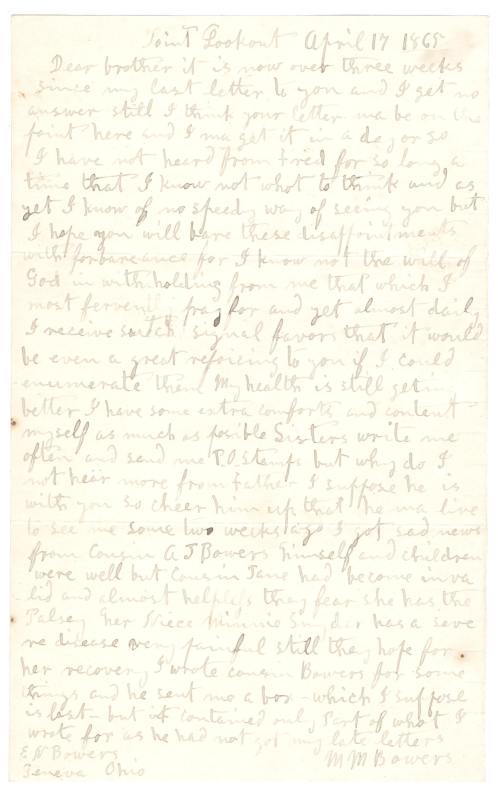 Point Lookout April 17 1865
Dear brother it is now over three weeks
since my last letter to you and I get no
answer still I think your letter ma be on the
point here and I ma get it in a day or so
I have not heard from Fried for so long a
time that I know not whot to think and as
yet I know of no speedy way of seeing you but
I hope you will bare these disappointments
with forbareance for I know not the will of
God in withholding from me that which I
most fervently pray for and yet almost daily
I receive sutch signal favors that it would
be even a great rejoicing to you if I could
enumerate them My health is still geting
better I have some extra comforts and content
myself as much as posible Sisters write me
often and send me P.O. Stamps but why do I
not hear more from Father I suppose he is
with you so cheer him up that he ma live
to see me some two weeks ago I got sad news
from Cousin A J Bowers himself and children
were well but Cousin Jane had become inva
lid and almost helpless they fear she has the
Palsey her Niece Minnie Snyder has a seve
re disease very painful still they hope for
her recovery I wrote cousin Bowers for some
things and he sent me a box - which I suppose
is lost - but it contained only part of whot I
wrote for as he had not got my late letters
E N Bowers
M M Bowers
Geneva Ohio